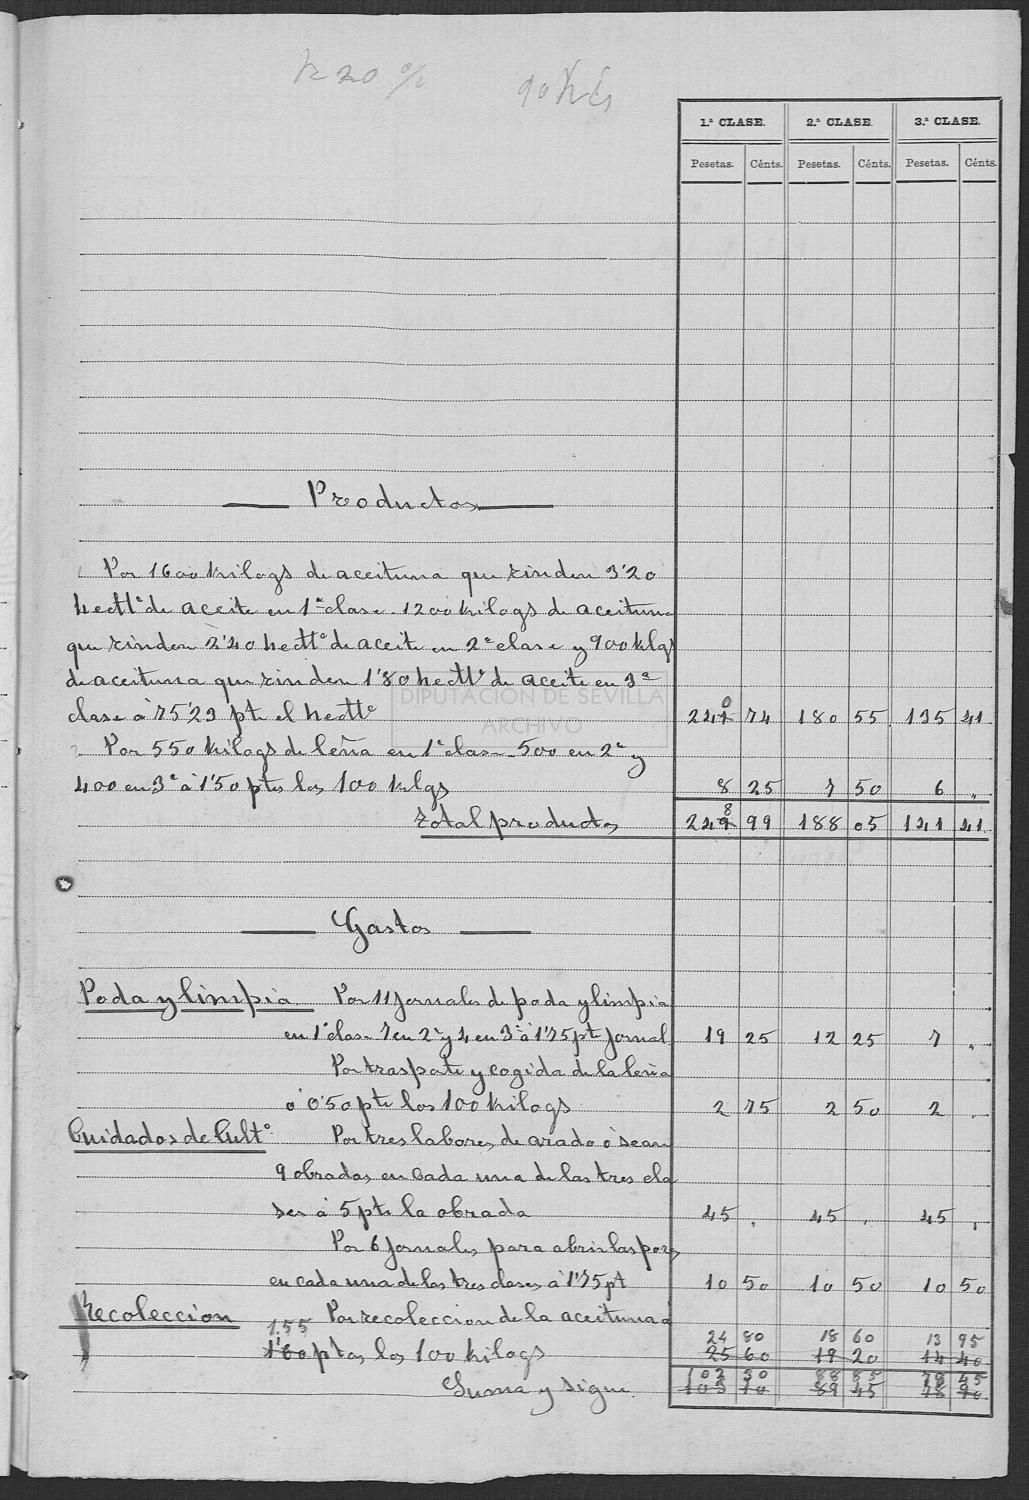 20 %
1.ª CLASE. 2.ª CLASE. 3.ª CLASE.
Pesetas. Cénts. Pesetas. Cénts. Pesetas. Cénts.
Productos
Por 1600 kilogs de aceituna que rinden 3'20
hectlº de aceite en 1ª clase. 1200 kilogs de aceituna
que rinden 2'40 hectlº de aceite en 2ª clase y 900 klgs
de aceituna que rinden 1'80 hectlº de aceite en 3ª
clase á 75'23 pts el hectlº 240 74 180 55 135 41
Por 550 kilogs de leña en 1ª clase 500 en 2ª y
400 en 3ª á 1'50 ptas los 100 klgs 8 25 7 50 6 "
Total productos 248 99 188 05 141 41
DIPUTACIÓN DE SEVILLA
ARCHIVO
Gastos
Poda y limpia Por 11 jornales de poda y limpia
en 1ª clase 7 en 2ª y 4 en 3ª á 1'75 pt jornal 19 25 12 25 7 "
Por trasporte y cogida de la leña
á 0'50 pts los 100 kilogs 2 75 2 50 2 "
Cuidados de Cultº Por tres labores de arado ó sean
9 obradas en cada una de las tres cla
ses á 5 pts la obrada 45 " 45 " 45 "
Por 6 jornales para abrir las pozas
en cada una de las tres clases á 1'75 pt 10 50 10 50 10 50
Recoleccion Por recoleccion de la aceituna á
1,55 24 80 18 60 13 95
1'60 ptas los 100 kilogs 25 60 19 20 14 40
102 30 88 85 78 45
Suma y sigue 103 10 89 45 78 90